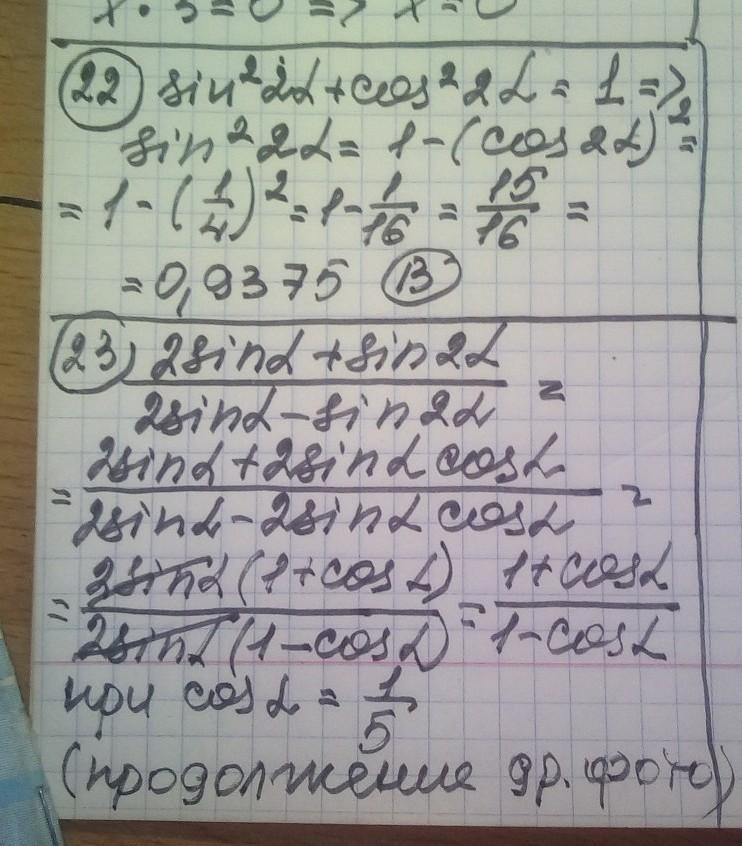 x · 3 = 0 => x = 0
22 sin² 2α + cos² 2α = 1 =>
sin² 2α = 1 - (cos 2α)² =
= 1 - (1/4)² = 1 - 1/16 = 15/16 =
= 0,9375 В
23) (2sinα + sin2α)/(2sinα - sin2α) =
= (2sinα + 2sinα cosα)/(2sinα - 2sinα cosα) =
= (2sinα(1 + cosα))/(2sinα(1 - cosα)) = (1 + cosα)/(1 - cosα)
при cosα = 1/5
(продолжение др. фото)